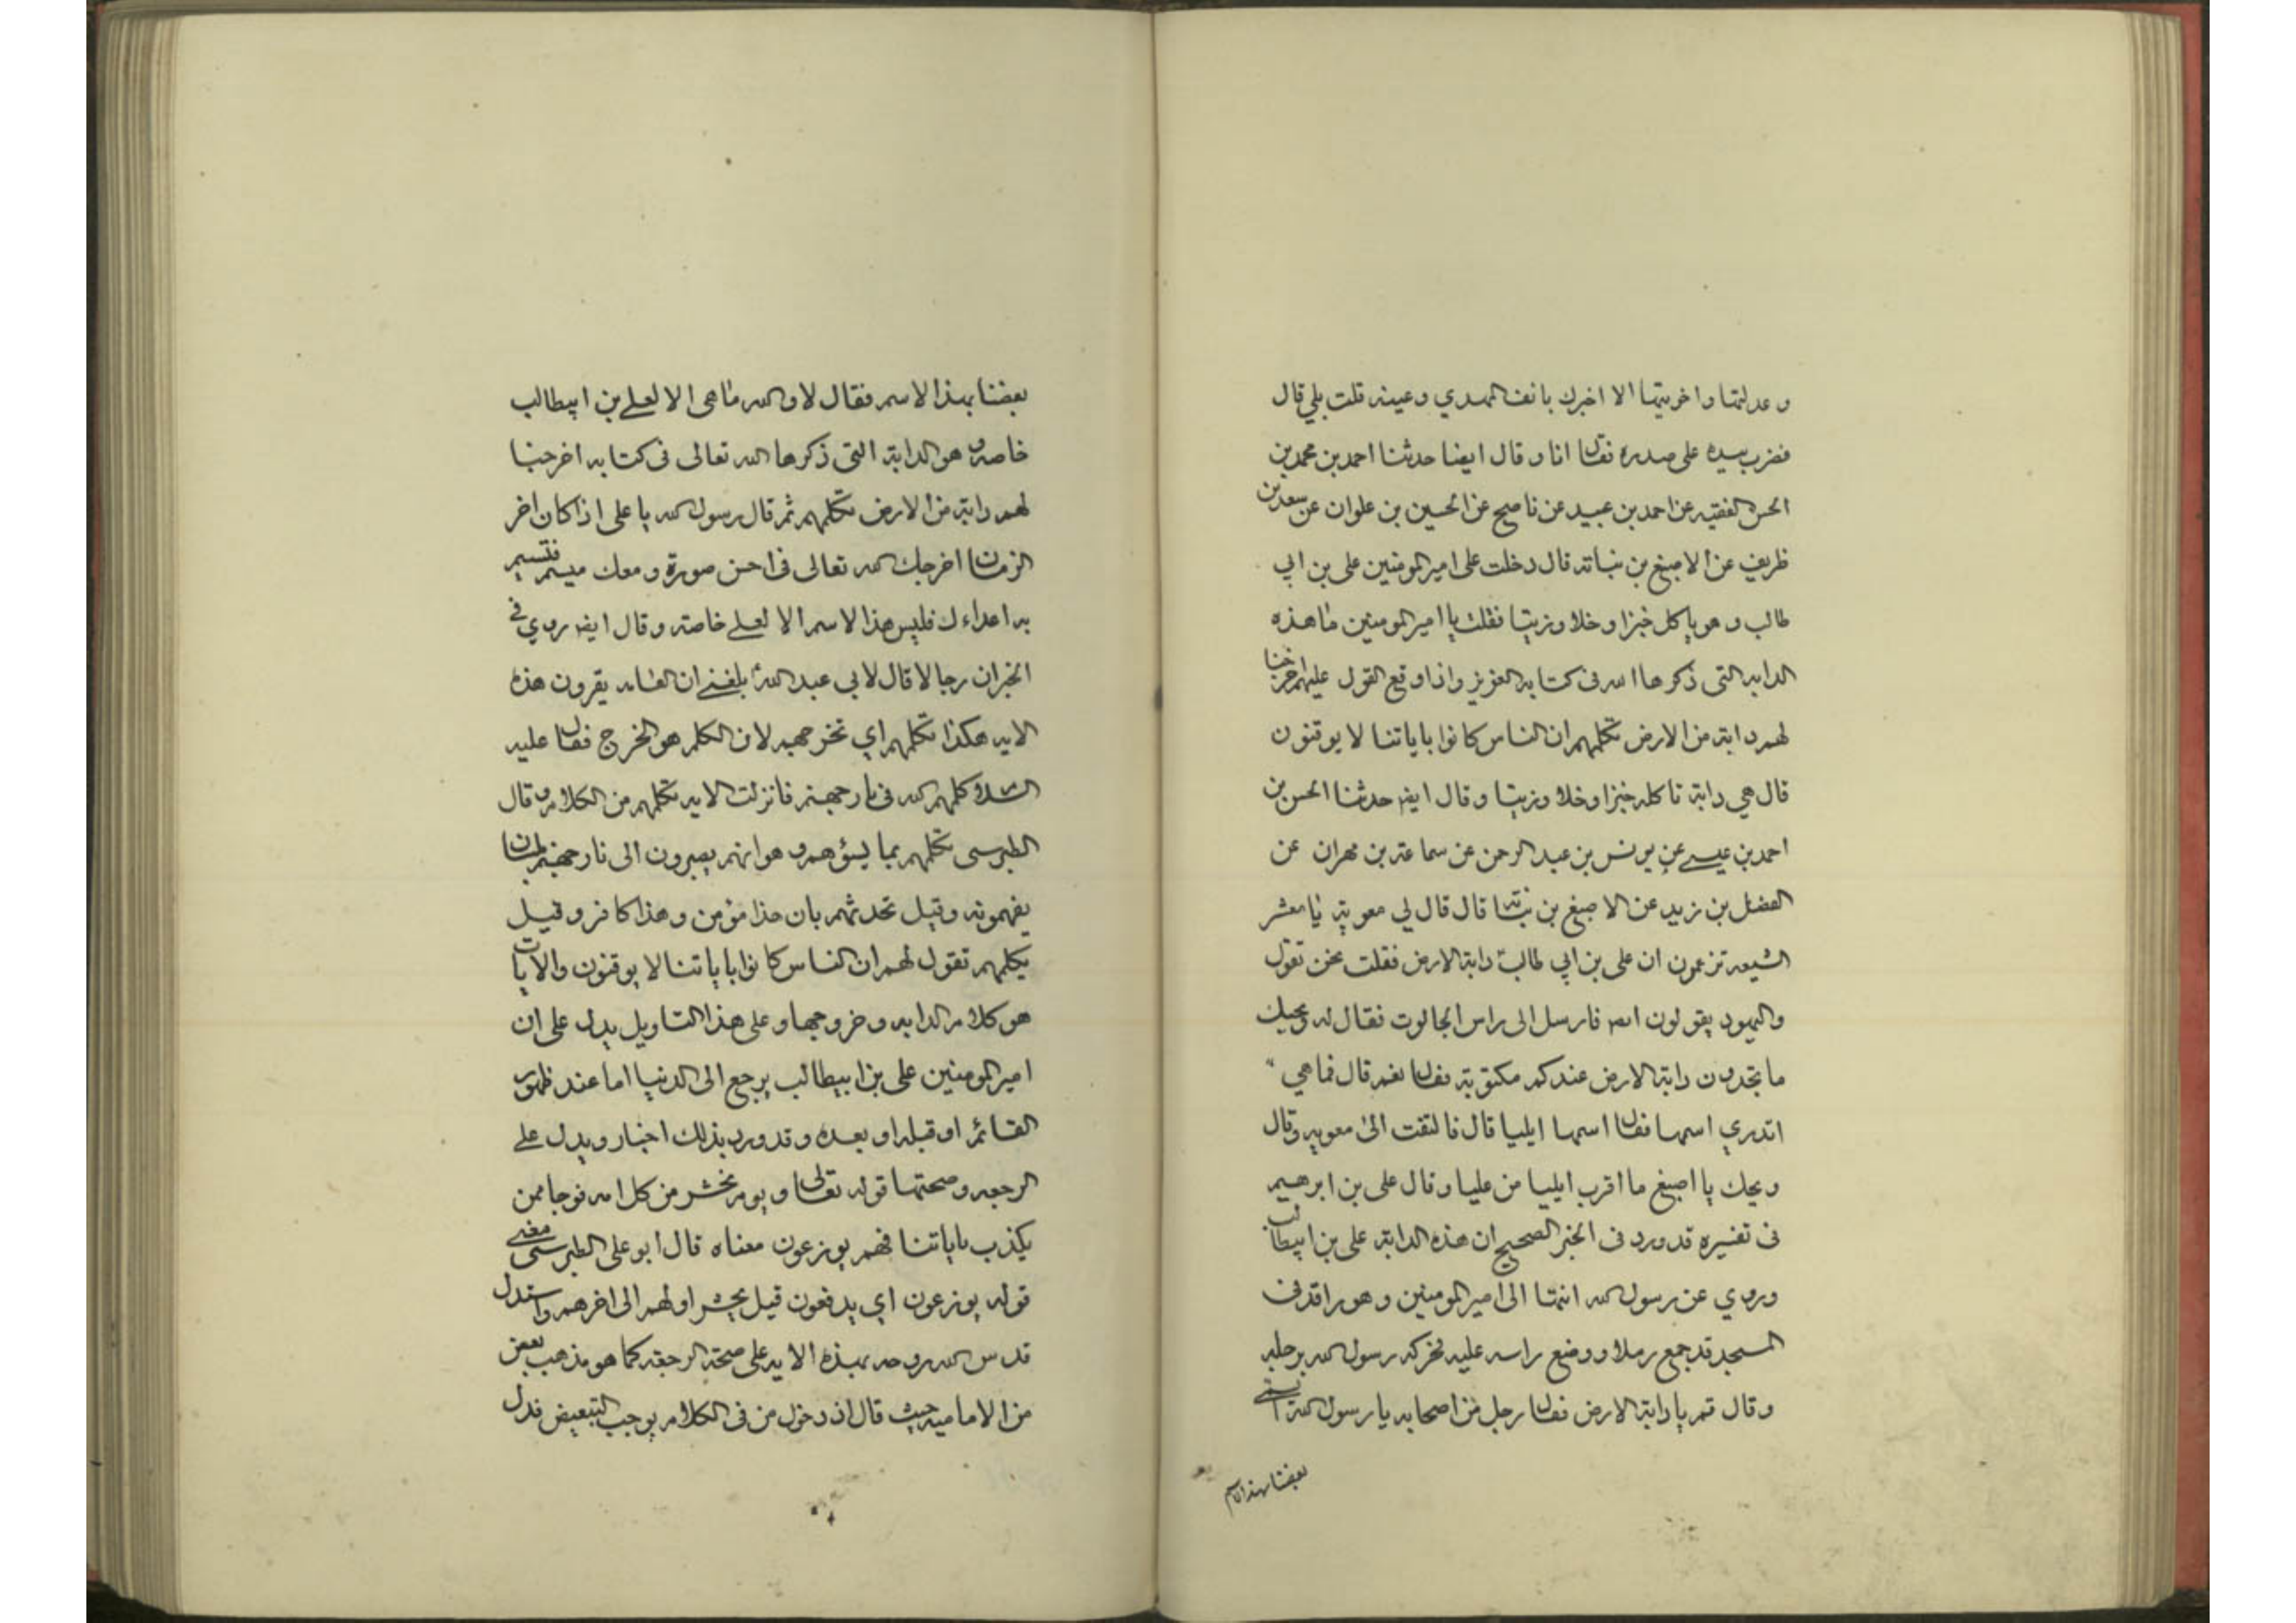 وعدلتها واخوتيها الا اخبرك بانف المهدي وعينه قلت بلي قال
فضرب بيده على صدره فقال انا وقال ايضا حدثنا احمد بن محمد بن
الحسن الفقيه عن احمد بن عبيد عن ناصح عن الحسين بن علوان عن سعد بن
ظريف عن الاصبغ بن نباته قال دخلت على امير المومنين علي بن ابي
طالب وهو ياكل خبزا وخلا وزيتا فقلت يا امير المومنين ما هذه
الدابه التي ذكرها الله في كتابه العزيز واذا وقع القول عليهم اخرجنا
لهم دابة من الارض تكلمهم ان الناس كانوا باياتنا لا يوقنون
قال هي دابة تاكله خبزا وخلا وزيتا وقال ايضا حدثنا الحسن بن
احمد بن عيسى عن يونس بن عبد الرحمن عن سماعة بن مهران عن
الفضل بن زبيد عن الاصبغ بن نباته قال قال لي معوية يا معشر
الشيعه تزعمون ان علي بن ابي طالب دابة الارض فقلت نحن نقول
واليهود يقولون انه فارسل الى راس الجالوت فقال له ويحك
ما تجدون دابة الارض عندكم مكتوبة فقال نعم قال فما هي
اتدري اسمها فقال اسمها ايليا قال فالتفت الى معويه وقال
ويحك يا اصبغ ما اقرب ايليا من عليا وقال علي بن ابرهيم
في تفسيره قد ورد في الخبر الصحيح ان هذه الدابة علي بن ابيطالب
وروي عن رسول الله انتها الى امير المومنين وهو راقد في
المسجد قد جمع رملا ووضع راسه عليه فحركه رسول الله برجله
وقال قم يا دابة الارض فقال رجل من اصحابه يا رسول الله ايسمى
بعضنا بهذا الاسم
بعضنا بهذا الاسم فقال لا والله ما هي الا لعلي بن ابيطالب
خاصة وهو الدابة التي ذكرها الله تعالى في كتابه اخرجنا
لهم دابة من الارض تكلمهم ثم قال رسول الله يا علي اذا كان اخر
الزمان اخرجك الله تعالى في احسن صورة ومعك ميسم فتسم
به اعداءك فليس هذا الاسم الا لعلي خاصة وقال ايضا روي في
الخبر ان رجلا قال لابي عبد الله بلغني ان العامه يقرون هذه
الايه هكذا تكلمهم اي تخرجهم لان الكلم هو الجرح فقال عليه
السلام كلمهم الله في نار جهنم فانزلت الايه تكلمهم من الكلام وقال
الطبرسي تكلمهم بما يسؤهم وهو انهم يصيرون الى نار جهنم بلسان
يفهمونه وقيل تحدثهم بان هذا مؤمن وهذا كافر وقيل
تكلمهم تقول لهم ان الناس كانوا باياتنا لا يوقنون والايات
هو كلام الدابه وخروجها وعلى هذا التاويل يدل على ان
امير المومنين علي بن ابيطالب يرجع الى الدنيا اما عند ظهور
القائم او قبله او بعده وقد ورد بذلك اخبار ويدل على
الرجعه وصحتها قوله تعالى ويوم نحشر من كل امه فوجا ممن
يكذب باياتنا فهم يوزعون معناه قال ابو علي الطبرسي معنى
قوله يوزعون اي يدفعون قيل يحشر اولهم الى اخرهم واستدل
قدس الله روحه بهذه الايه على صحة الرجعة كما هو مذهب بعض
من الاماميه حيث قال ان دخول من في الكلام يوجب التبعيض فدل